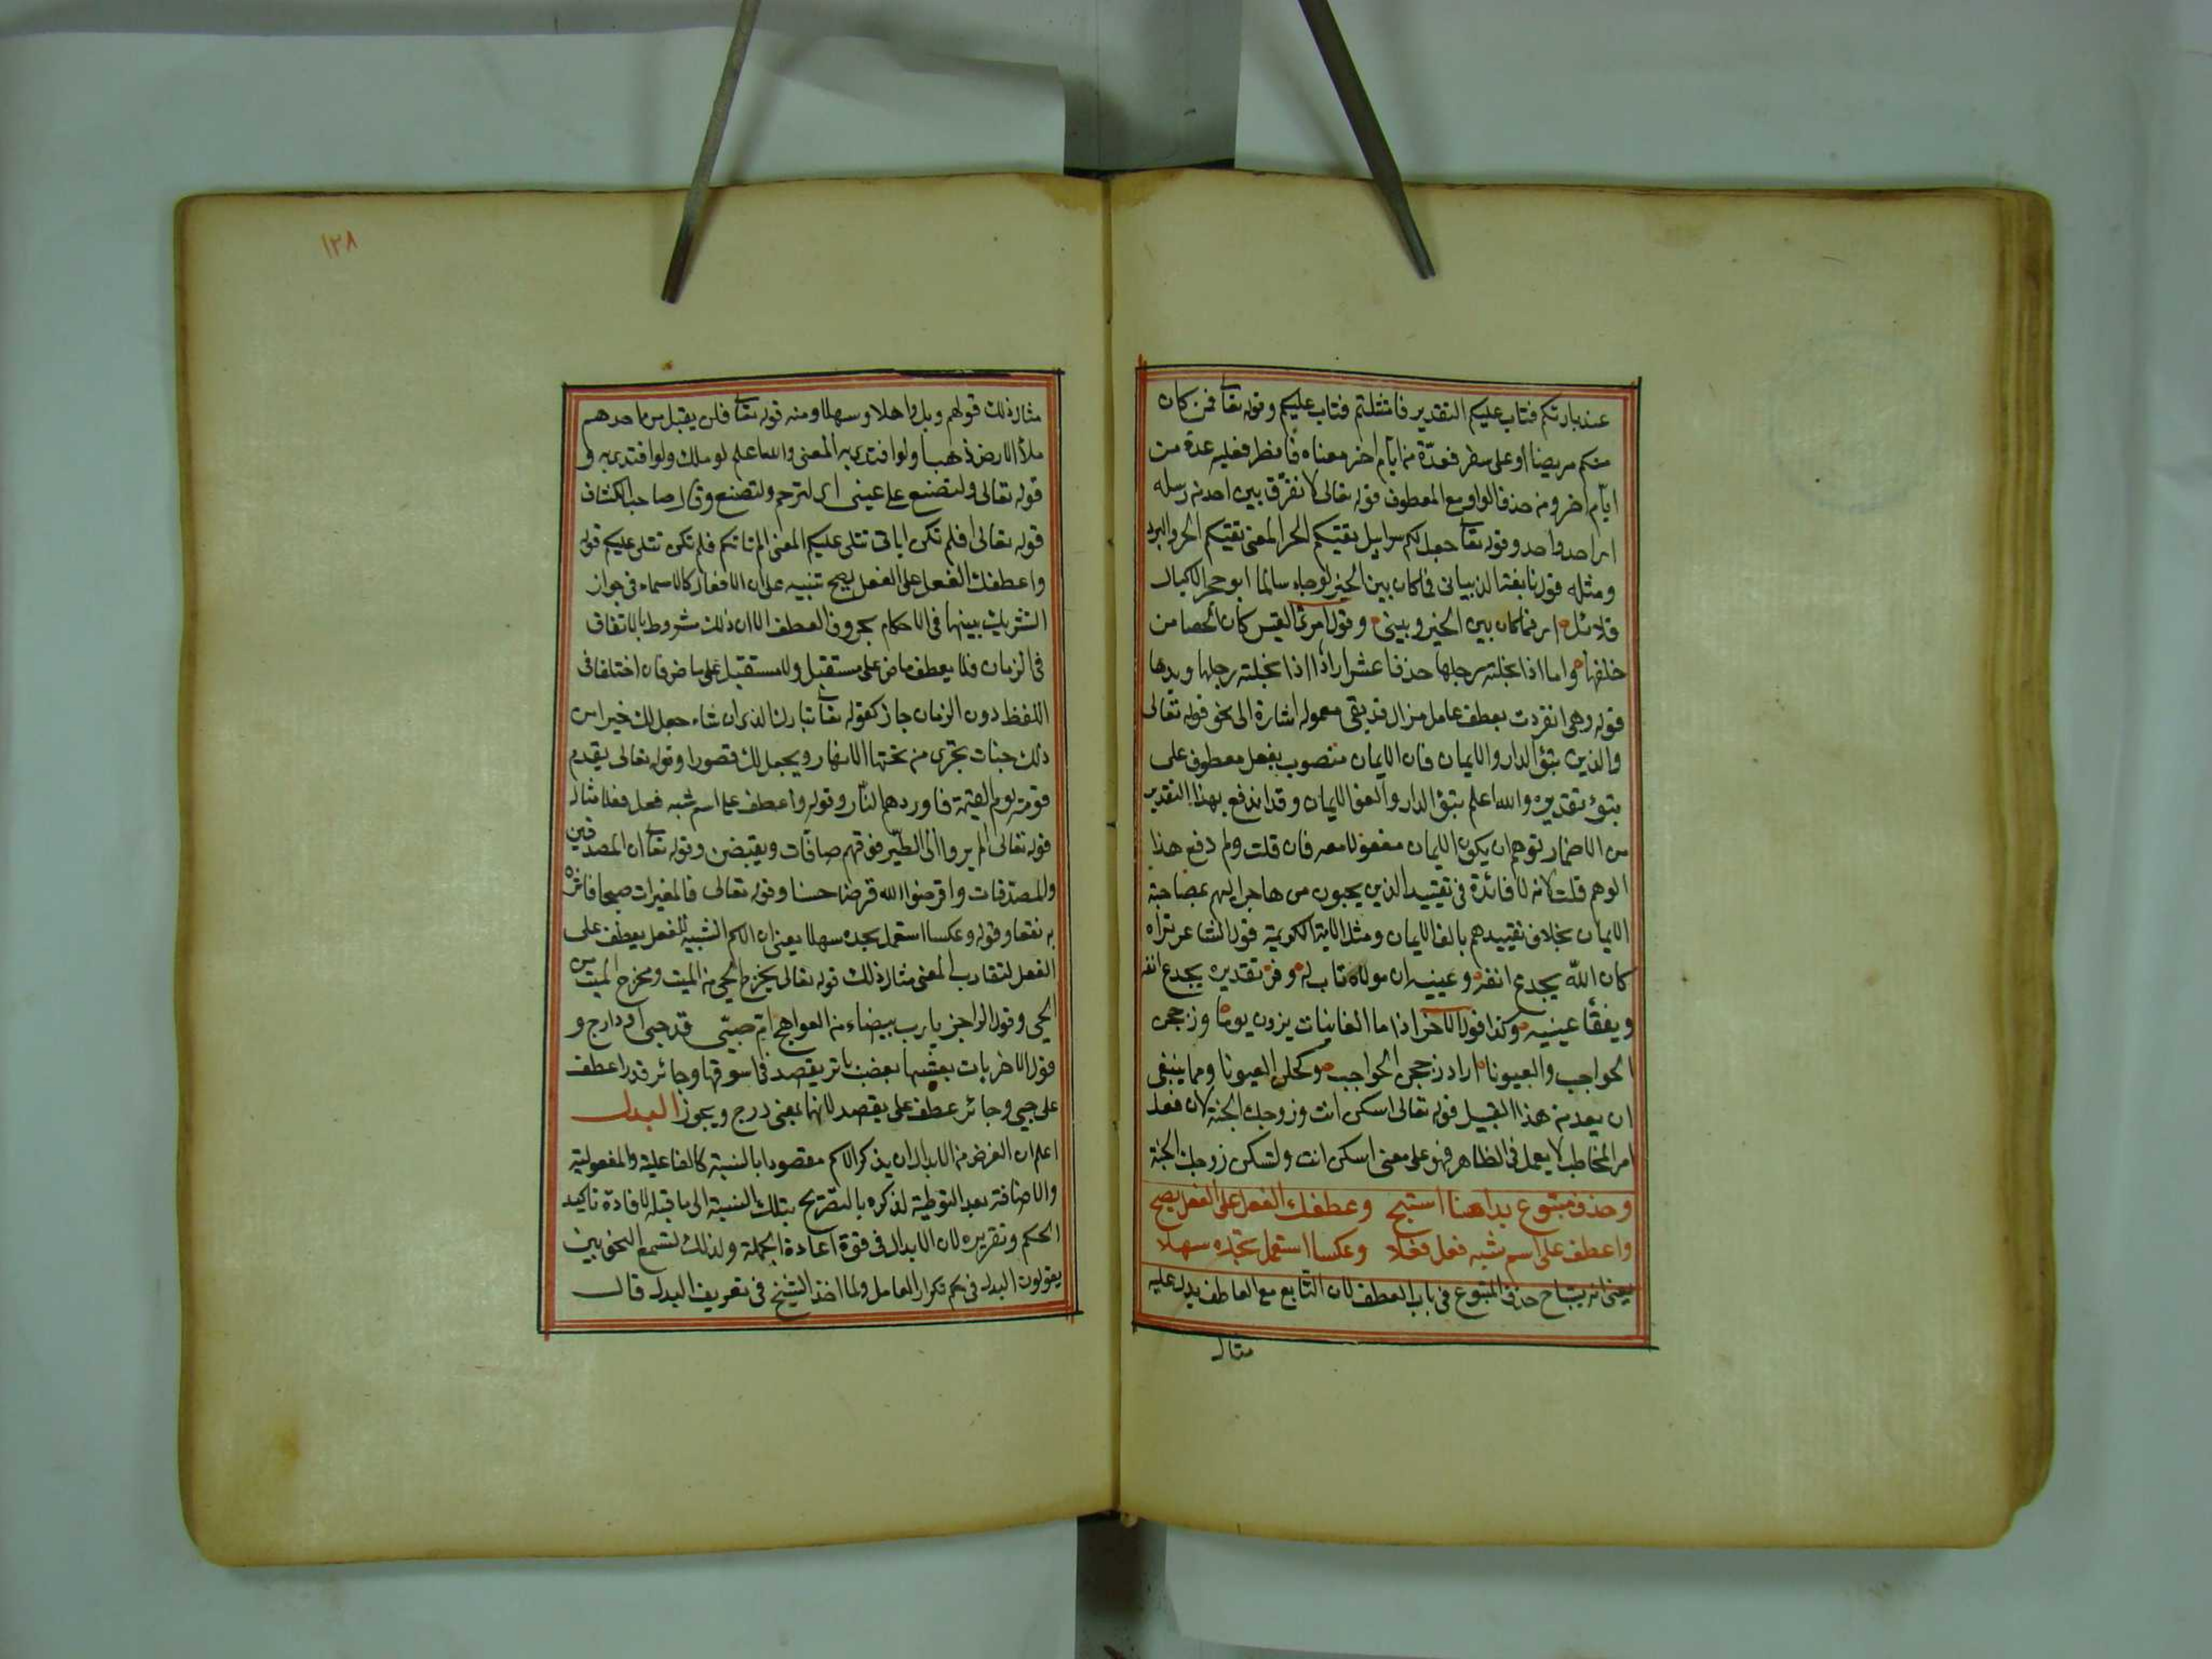 عند بارئكم فتاب عليكم التقدير فامتثلتم فتاب عليكم وقوله تعا فمن كان
منكم مريضا او على سفر فعدّة من ايام اخر معناه فافطر فعليه عدة من
ايّام اخر ومنه حذف الواو مع المعطوف قوله تعالى لا نفرّق بين احد من رسله
اى احد واحد وقوله تعا جعل لكم سرابيل تقيكم الحر المعنى تقيكم الحر والبرد
ومثله قول نابغة الذبيانى فما كان بين الخير لو جاء سالما ابو حجر الا ليال
قلائل اى فما كان بين الخير وبينى وقول امرئ القيس كأن الحصا من
خلفها واما اذا نجلته رجلها حذف اعشرا اراد اذا نجلته رجلها ويدها
قوله وهى انفردت بعطف عامل مزال قد بقى معموله اشارة الى نحو قوله تعالى
والذين تبوّؤ الدار والايمان فان الايمان منصوب بفعل معطوف على
تبوؤ تقديره والله اعلم تبوؤ الدار والفو الايمان وقد اندفع بهذا التقدير
من الاضمار توهم ان يكون الايمان مفعولا معه فان قلت ولم دفع هذا
الوهم قلت لانه لا فائدة فى تقييد الذين يحبون من هاجر اليهم بمصاحبة
الايمان بخلاف تقييدهم بالف الايمان ومثل الاية الكريمة قول الشاعر تراه
كان الله يجدع انفه وعينيه ان مولاه تاب له وفر تقديره يجدع انفه
ويفقأ عينيه وكذا قول الآخر اذا ما الغانيات بزون يوما وزججن
الحواجب والعيونا اراد زججن الحواجب وكحلن العيونا ومما ينبغى
ان يعد من هذا القبيل قوله تعالى اسكن انت وزوجك الجنة لان فعل
امر المخاطب لا يعمل فى الظاهر فهو على معنى اسكن انت ولتسكن زوجك الجنة
وحذف متبوع بدا هنا استبح وعطفك الفعل على الفعل يصح
واعطف على اسم شبه فعل فعلا وعكسا استعمل تجده سهلا
يعنى انه يستباح حذف المتبوع فى باب العطف لان التابع مع العاطف يدل عليه
مثال
١٢٨
مثال ذلك قولهم وبك واهلا وسهلا ومنه قوله تعا فلن يقبل من احدهم
ملأ الارض ذهبا ولو افتدى به المعنى والله اعلم لو ملك ولو افتدى به و
قوله تعالى ولتصنع على عينى اى لترحم ولتصنع وقال صاحب الكشاف
قوله تعالى افلم تكن اياتى تتلى عليكم المعنى الم تاتكم فلم تكن تتلى عليكم قوله
واعطفك الفعل على الفعل يصح تنبيه على ان الافعال كالاسماء فى جواز
التشريك بينها فى الاحكام بحروف العطف الا ان ذلك مشروط بالاتفاق
فى الزمان فلا يعطف ماض على مستقبل ولا مستقبل على ماض فان اختلفا فى
اللفظ دون الزمان جاز كقوله تعا تبارك الذى ان شاء جعل لك خيرا من
ذلك جنات تجرى من تحتها الانهار ويجعل لك قصورا وقوله تعالى يقدم
قومه يوم القيمة فاوردهم النار وقوله واعطف على اسم شبه فعل فعلا مثال
قوله تعالى الم يروا الى الطير فوقهم صافّات ويقبضن وقوله تعا ان المصدقين
والمصدّقات واقرضوا الله قرضا حسنا وقوله تعالى فالمغيرات صبحا فاثرن
به نقعا وقوله وعكسا استعمل تجده سهلا يعنى ان الاسم الشبيه للفعل يعطف على
الفعل لتقارب المعنى مثال ذلك قوله تعالى يخرج الحى من الميت ومخرج الميت من
الحى وقول الراجز يا رب بيضاء من العواهج ام صبّى قد حبى او دارج و
قول الاخر بات يعشيها بعضب باتر يقصد فى اسوقها وجائر فدارج عطف
على حبى وجائر عطف على يقصد لانها بمعنى درج ويجوز البدل
اعلم ان الغرض من الابدال ان يذكر الاسم مقصودا بالنسبة كالفاعلية والمفعولية
والاضافة بعد التوطية لذكره بالتصريح بتلك النسبة الى ما قبله لافادة تاكيد
الحكم وتقريره لان الابدال فى قوة اعادة الجملة ولذلك تسمع النحويين
يقولون البدل فى حكم تكرار العامل ولما اخذ الشيخ فى تعريف البدل قال